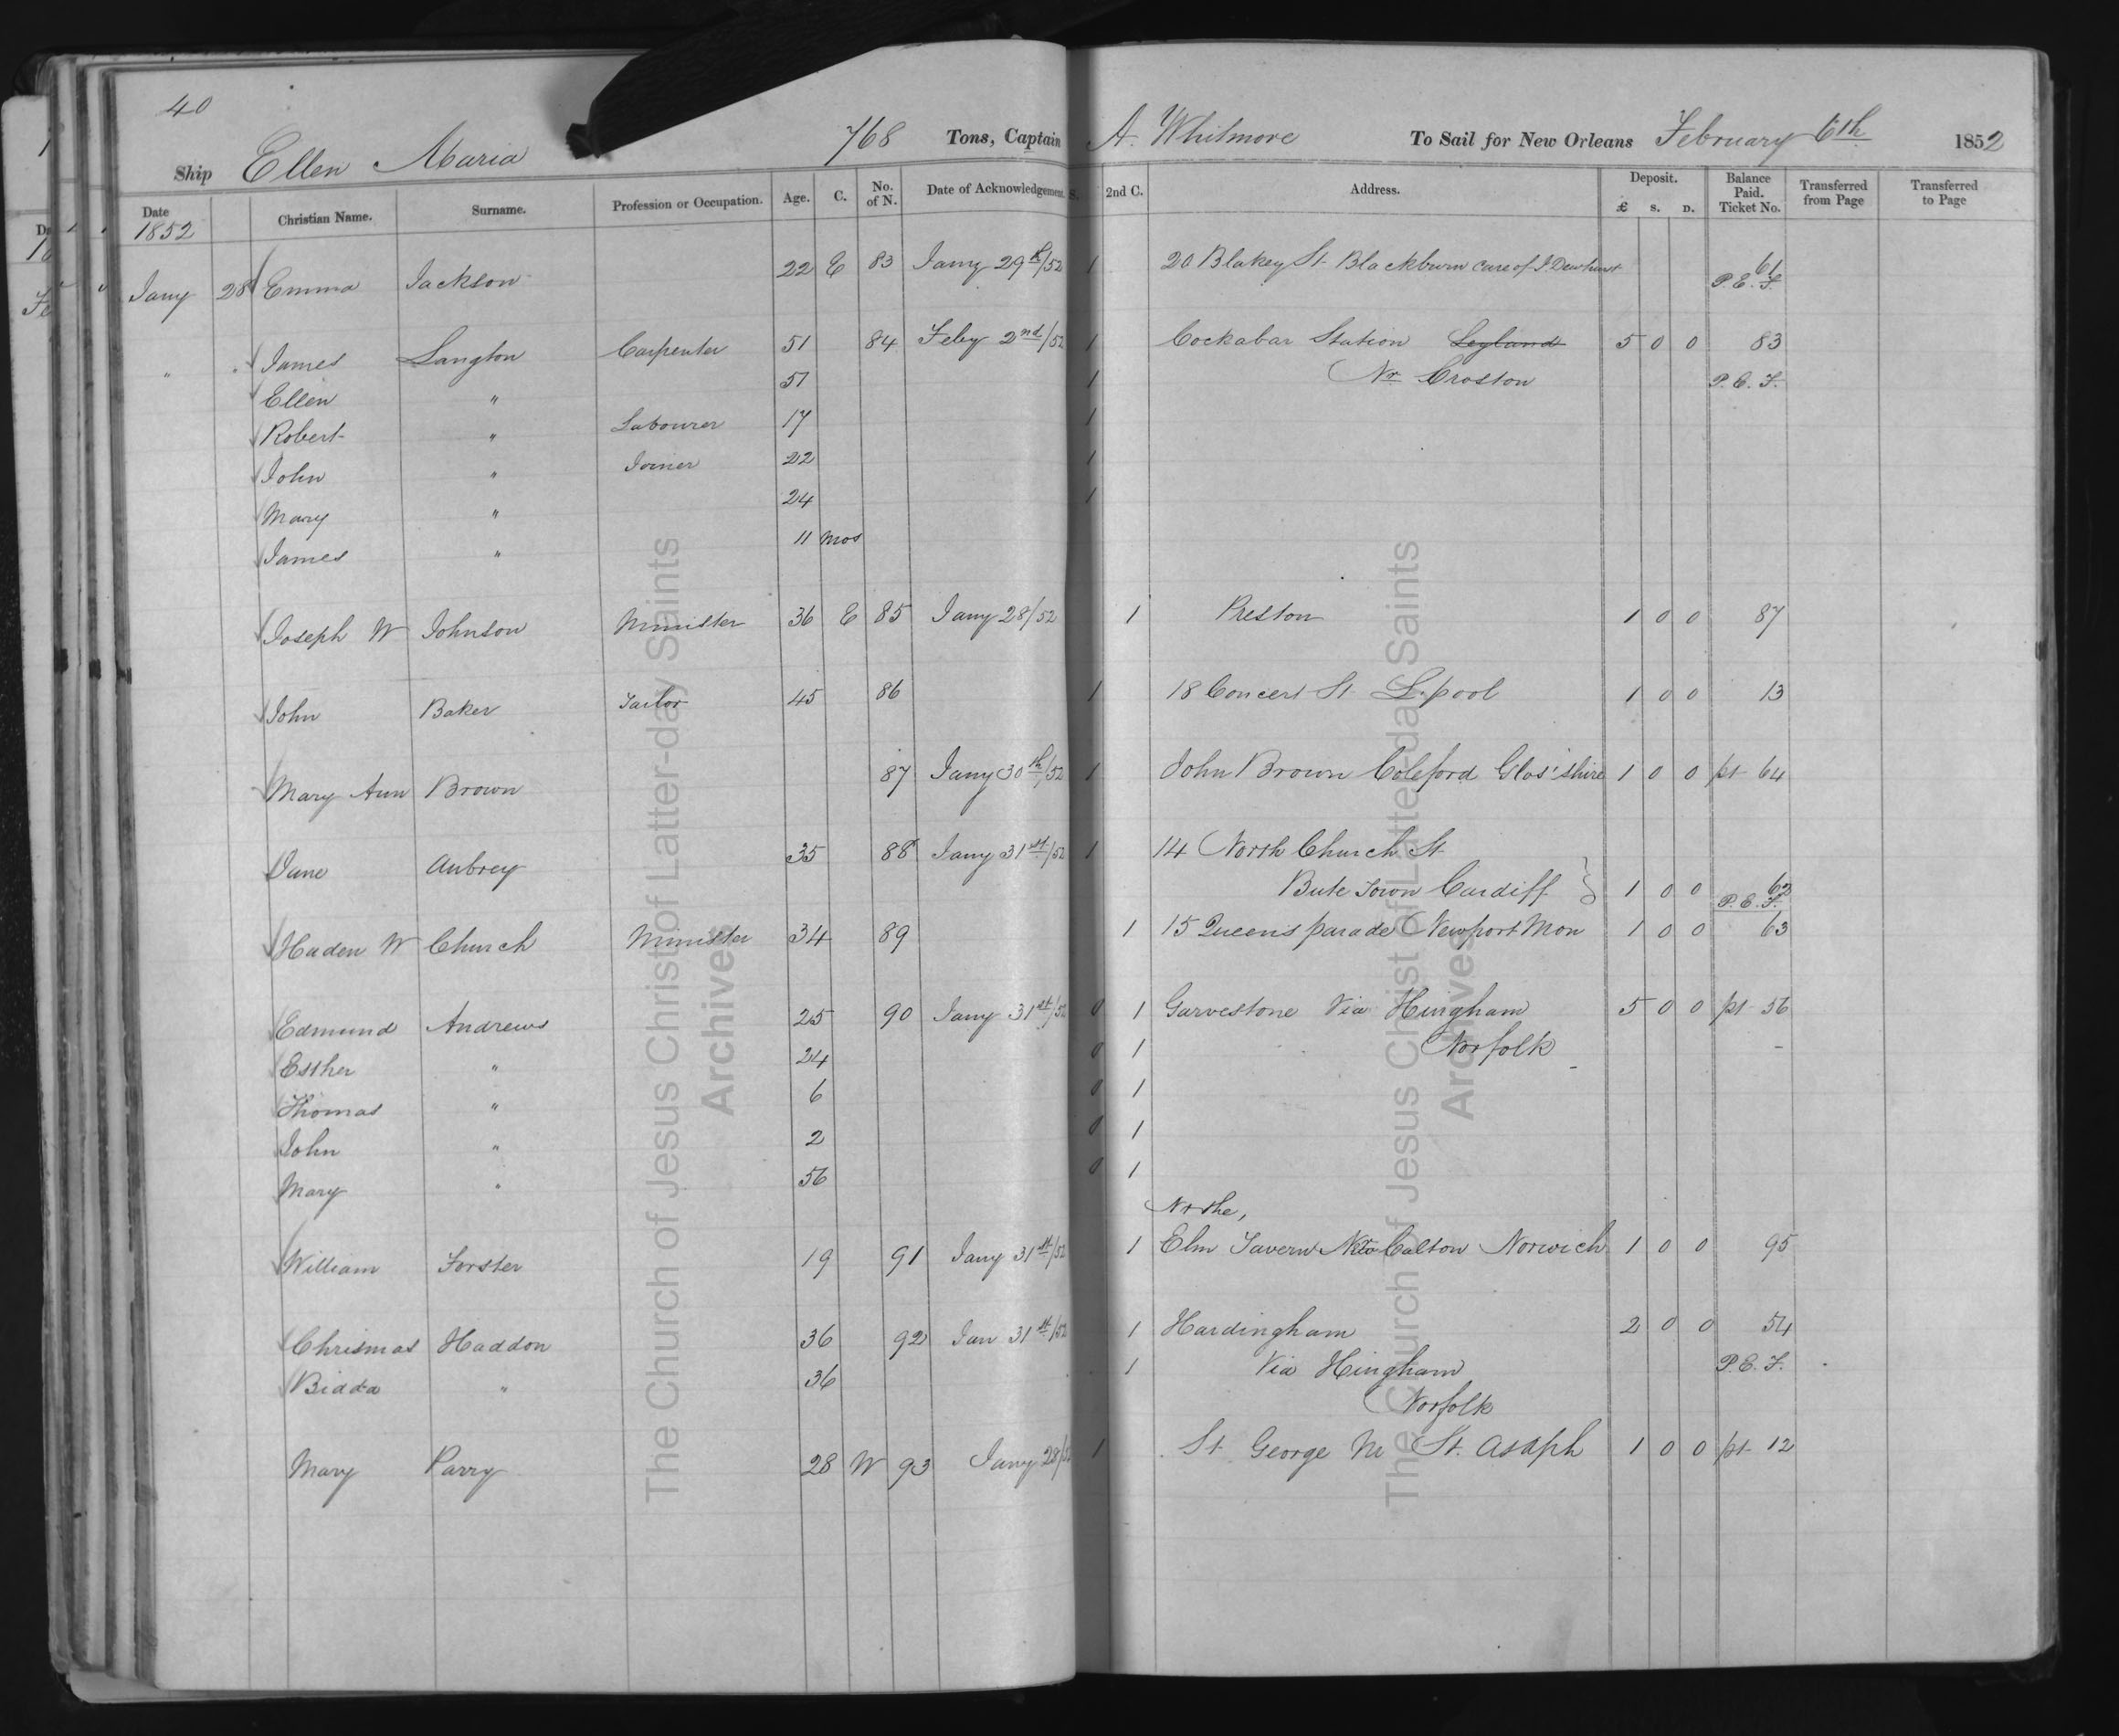 40
Ship Ellen Maria 768 Tons, Captain A. Whitmore To Sail for New Orleans February 6th 1852
Date Christian Name. Surname. Profession or Occupation. Age. C. No. of N. Date of Acknowledgement. S. 2nd C. Address. Deposit. £ s. D. Balance Paid. Ticket No. Transferred from Page Transferred to Page
1852
Jany 28 Emma Jackson 22 E 83 Jany 29th/52 1 20 Blakey St Blackburn care of J. Dewhurst 61 P. E. F.
" " James Langton Carpenter 51 84 Feby 2nd/52 1 Cockabar Station Leyland 5 0 0 83
Ellen " 57 1 Nr Croston P. E. F.
Robert " Labourer 17 1
John " Joiner 22 1
Mary " 24 1
James " 11 mos
Joseph W Johnson Minister 36 E 85 Jany 28/52 1 Preston 1 0 0 87
John Baker Tailor 45 86 1 18 Concert St L.pool 1 0 0 13
Mary Ann Brown 87 Jany 30th/52 1 John Brown Coleford Glos'shire 1 0 0 pt 64
Jane Aubrey 35 88 Jany 31st/52 1 14 North Church St
Bute Town Cardiff } 1 0 0 62 P. E. F.
Haden W Church Minister 34 89 1 15 Queens parade Newport Mon 1 0 0 63
Edmund Andrews 25 90 Jany 31st/52 0 1 Garvestone Via Hingham 5 0 0 pt 56
Esther " 24 0 1 Norfolk
Thomas " 6 0 1
John " 2 0 1
Mary " 56 0 1
Nr the,
William Forster 19 91 Jany 31st/52 1 Elm Tavern Calton Norwich 1 0 0 95
Chrismas Haddon 36 92 Jan 31st/52 1 Hardingham 2 0 0 54
Bidda " 36 1 Via Hingham P. E. F.
Norfolk
Mary Parry 28 W 93 Jany 28/52 1 St George Nr St. Asaph 1 0 0 pt 12
The Church of Jesus Christ of Latter-day Saints
Archives
The Church of Jesus Christ of Latter-day Saints
Archives